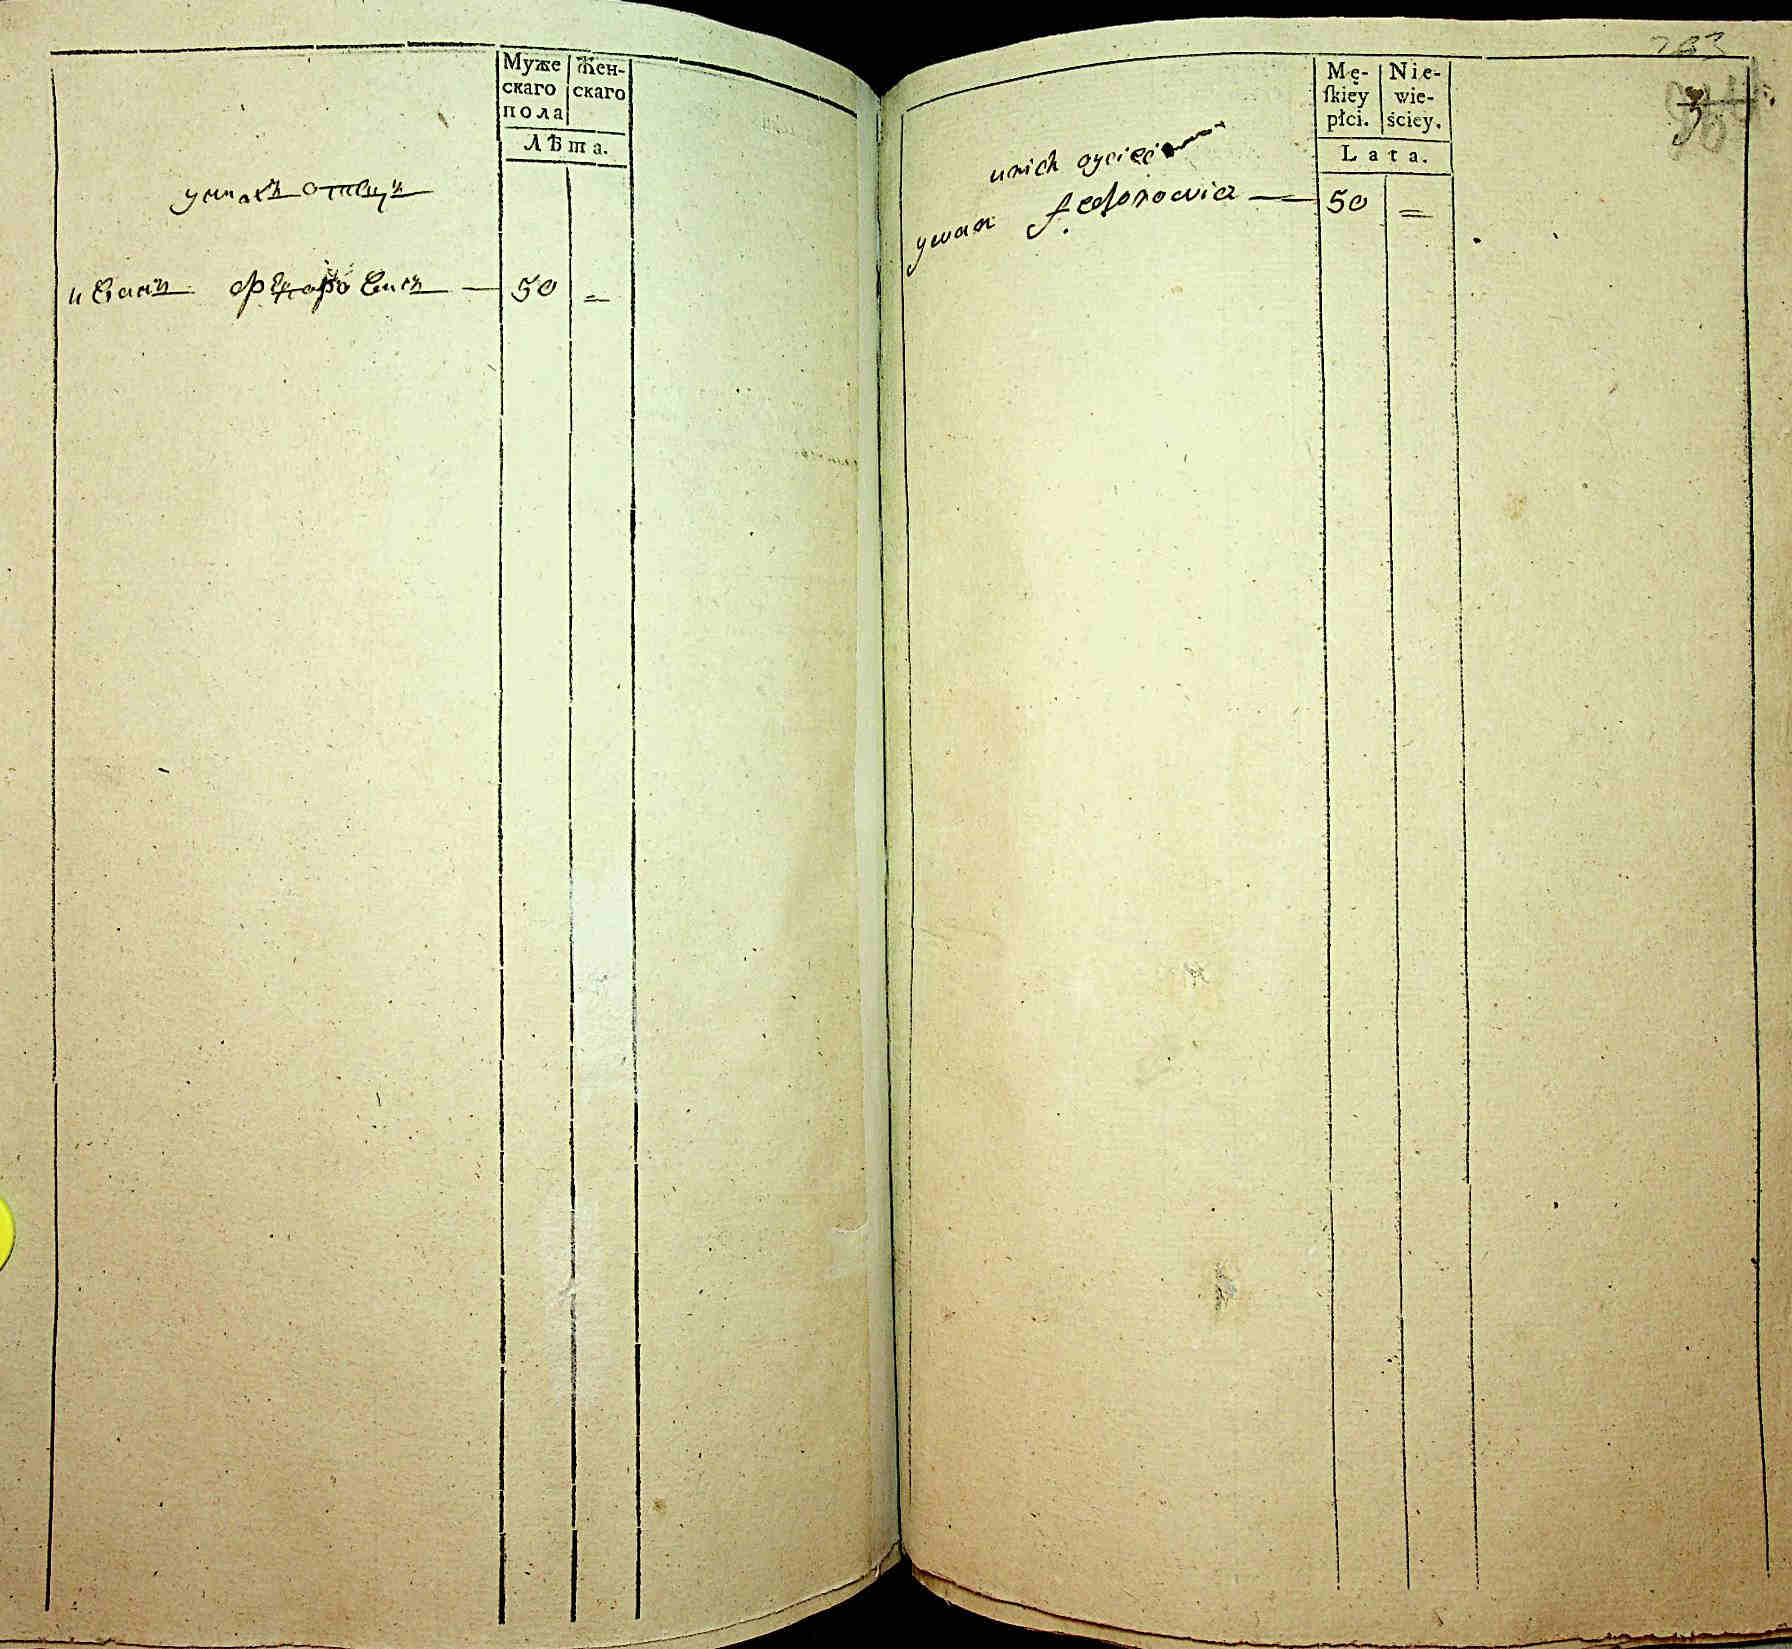 Муже
скаго
пола
Жен-
скаго
Лѣта.
у них отецъ
иванъ федоровичъ — 50 =
283
Mę-
ſkiey
płci.
Nie-
wie-
ściey.
Lata.
unich oyciec
ywan fedorowicz — 50 =